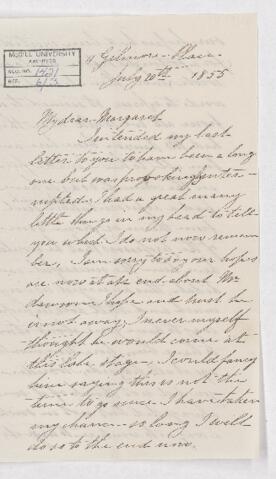 McGILL UNIVERSITY
ARCHIVES
ACC. NO. 1421
REF. 6/3
9 Gilmore Place
July 20th 1855
My dear Margaret
I intended my last
letter to you to have been a long
one but was provokingly inter-
rupted. I had a great many
little things in my head to tell
you which I do not now remem
ber, I am sorry to say our hopes
are now at an end about Mr
Dawson I hope and trust he
is not away, I never myself
thought he would come at
this late stage, I could fancy
him saying this is not the
time to go since I have taken
my chance so long I will
do so to the end now.